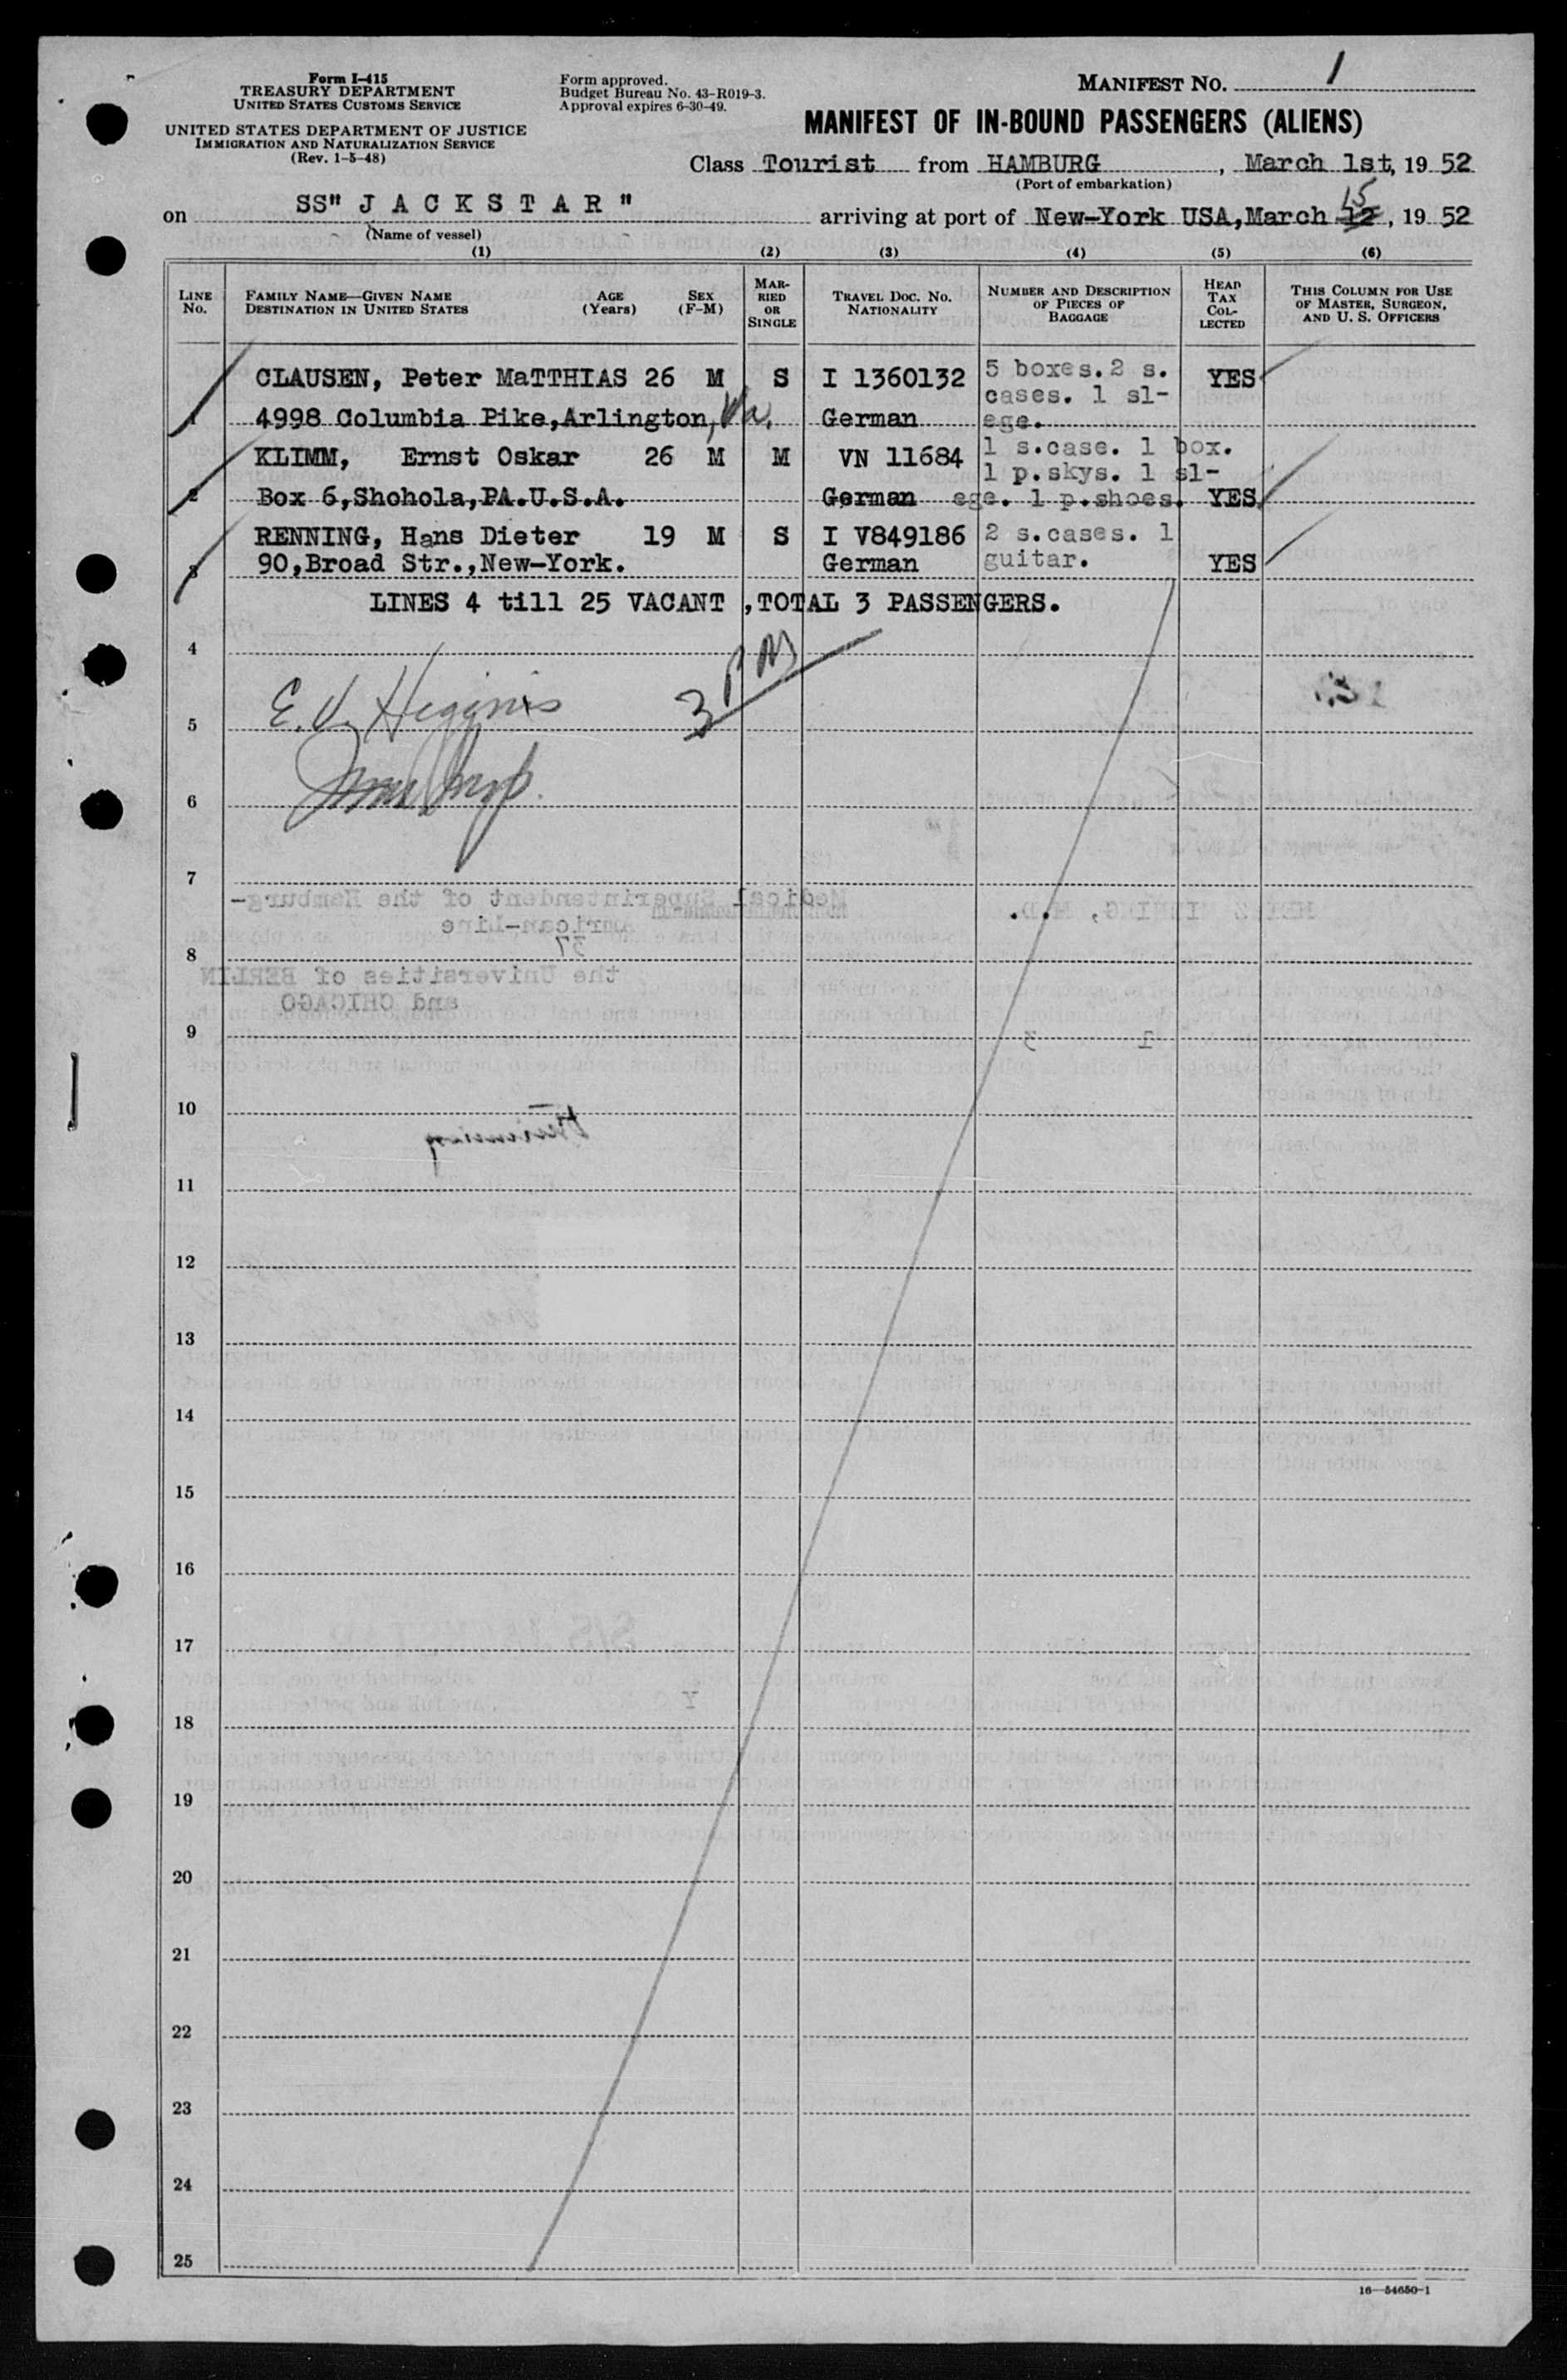 Form I-415
TREASURY DEPARTMENT
UNITED STATES CUSTOMS SERVICE
UNITED STATES DEPARTMENT OF JUSTICE
IMMIGRATION AND NATURALIZATION SERVICE
(Rev. 1-5-48)
Form approved.
Budget Bureau No. 43-R019-3.
Approval expires 6-30-49.
MANIFEST NO. 1
MANIFEST OF IN-BOUND PASSENGERS (ALIENS)
Class Tourist from HAMBURG, March 1st, 19 52
(Port of embarkation)
on SS" J A C K S T A R " arriving at port of New-York USA, March 12 15, 19 52
(Name of vessel)
(1) (2) (3) (4) (5) (6)
LINE No. FAMILY NAME—GIVEN NAME DESTINATION IN UNITED STATES AGE (Years) SEX (F-M) MARRIED OR SINGLE TRAVEL DOC. NO. NATIONALITY NUMBER AND DESCRIPTION OF PIECES OF BAGGAGE HEAD TAX COLLECTED THIS COLUMN FOR USE OF MASTER, SURGEON, AND U. S. OFFICERS
CLAUSEN, Peter MaTTHIAS 26 M S I 1360132 5 boxes. 2 s. cases. 1 sl- YES
1 4998 Columbia Pike, Arlington, Va. German ege.
KLIMM, Ernst Oskar 26 M M VN 11684 1 s.case. 1 box. 1 p.skys. 1 sl-
2 Box 6, Shohola, PA.U.S.A. German ege. 1 p.shoes. YES
RENNING, Hans Dieter 19 M S I V849186 2 s.cases. 1
3 90, Broad Str., New-York. German guitar. YES
LINES 4 till 25 VACANT , TOTAL 3 PASSENGERS.
4
E. V. Higgins
3
5
6
7
Medical Superintendent of the Hamburg-
American-Line
8
37
the Universities of BERLIN
and CHICAGO
9
10
11
12
13
14
15
16
17
18
19
20
21
22
23
24
25
16—54650-1